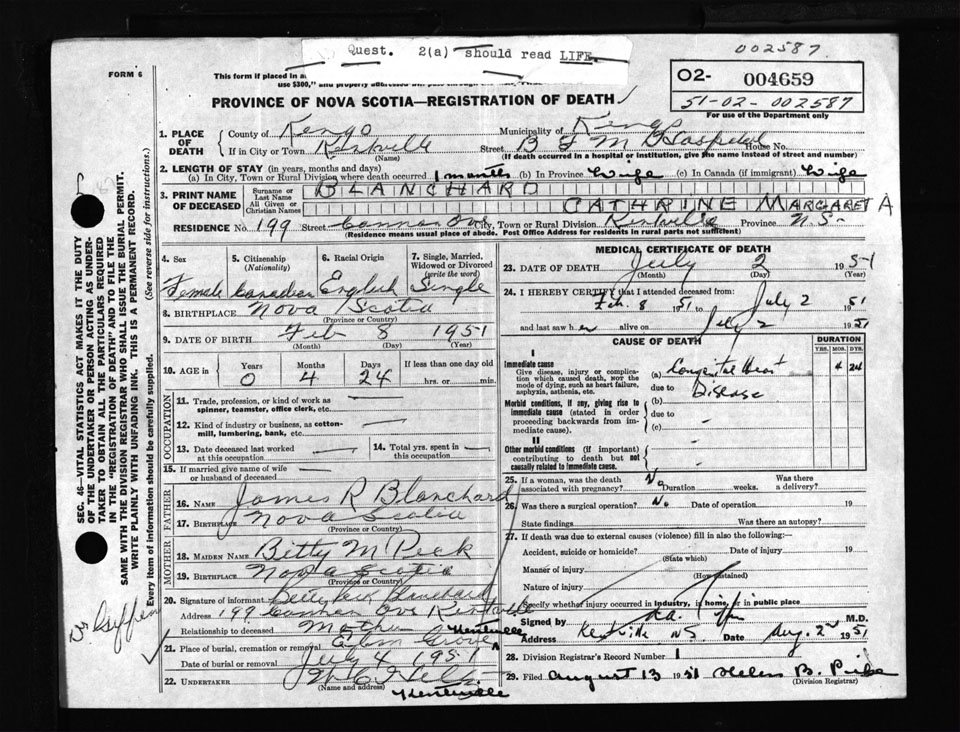 Quest. 2(a) should read LIFE.
002587
FORM 6
This form if placed in a
use $300," and properly addressed
02- 004659
51-02-002587
For use of the Department only
PROVINCE OF NOVA SCOTIA—REGISTRATION OF DEATH
1. PLACE OF DEATH { County of Kings Municipality of Kings
If in City or Town Kentville Street B F M Hospital House No.
(Name) (If death occurred in a hospital or institution, give the name instead of street and number)
2. LENGTH OF STAY (in years, months and days)
(a) In City, Town or Rural Division where death occurred 1 months (b) In Province Life (c) In Canada (if immigrant) Life
3. PRINT NAME OF DECEASED { Surname or Last Name BLANCHARD
All Given or Christian Names CATHRINE MARGARET A
RESIDENCE No. 199 Street Cannon Ave City, Town or Rural Division Kentville Province N.S-
(Residence means usual place of abode. Post Office Address for residents in rural parts not sufficient)
4. Sex 5. Citizenship (Nationality) 6. Racial Origin 7. Single, Married, Widowed or Divorced (write the word)
Female Canadian English Single
8. BIRTHPLACE Nova Scotia
(Province or Country)
9. DATE OF BIRTH Feb 8 1951
(Month) (Day) (Year)
10. AGE in { Years Months Days If less than one day old
0 4 24 hrs. or min.
OCCUPATION
11. Trade, profession, or kind of work as spinner, teamster, office clerk, etc.
12. Kind of industry or business, as cotton-mill, lumbering, bank, etc.
13. Date deceased last worked at this occupation 14. Total yrs. spent in this occupation
15. If married give name of wife or husband of deceased
FATHER
16. NAME James R Blanchard
17. BIRTHPLACE Nova Scotia
(Province or Country)
MOTHER
18. MAIDEN NAME Betty M Peck
19. BIRTHPLACE Nova Scotia
(Province or Country)
20. Signature of informant Betty Peck Blanchard
Address 199 Cannon Ave Kentville
Relationship to deceased Mother
Kentville
21. Place of burial, cremation or removal Elm Grove
Date of burial or removal July 4 1951
22. UNDERTAKER
(Name and address) Kentville
MEDICAL CERTIFICATE OF DEATH
23. DATE OF DEATH July 2 1951
(Month) (Day) (Year)
24. I HEREBY CERTIFY that I attended deceased from:
Feb. 8 1951 to July 2 1951
and last saw her alive on July 2 1951
CAUSE OF DEATH DURATION
YRS. MOS. DYS.
I
Immediate cause
Give disease, injury or complication which caused death, NOT the mode of dying, such as heart failure, asphyxia, asthenia, etc.
(a) Congenital Heart 4 24
due to Disease
Morbid conditions, if any, giving rise to immediate cause (stated in order proceeding backwards from immediate cause).
(b)
due to
(c)
II
Other morbid conditions (if important) contributing to death but not causally related to immediate cause.
25. If a woman, was the death associated with pregnancy? No Duration weeks. Was there a delivery?
26. Was there a surgical operation? No Date of operation 19
State findings Was there an autopsy?
27. If death was due to external causes (violence) fill in also the following:
Accident, suicide or homicide? Date of injury 19
(State which)
Manner of injury
(How sustained)
Nature of injury
Specify whether injury occurred in industry, in home, or in public place
Signed by M.D.
Address Kentville N.S. Date Aug. 2nd 1951
28. Division Registrar's Record Number 1
29. Filed August 13 1951 Helen B.
(Division Registrar)
SEC. 46—VITAL STATISTICS ACT MAKES IT THE DUTY
OF THE UNDERTAKER OR PERSON ACTING AS UNDER-
TAKER TO OBTAIN ALL THE PARTICULARS REQUIRED
IN THE "REGISTRATION OF DEATH" AND TO FILE THE
SAME WITH THE DIVISION REGISTRAR WHO SHALL ISSUE THE BURIAL PERMIT.
WRITE PLAINLY WITH UNFADING INK. THIS IS A PERMANENT RECORD.
Every item of information should be carefully supplied. (See reverse side for instructions.)